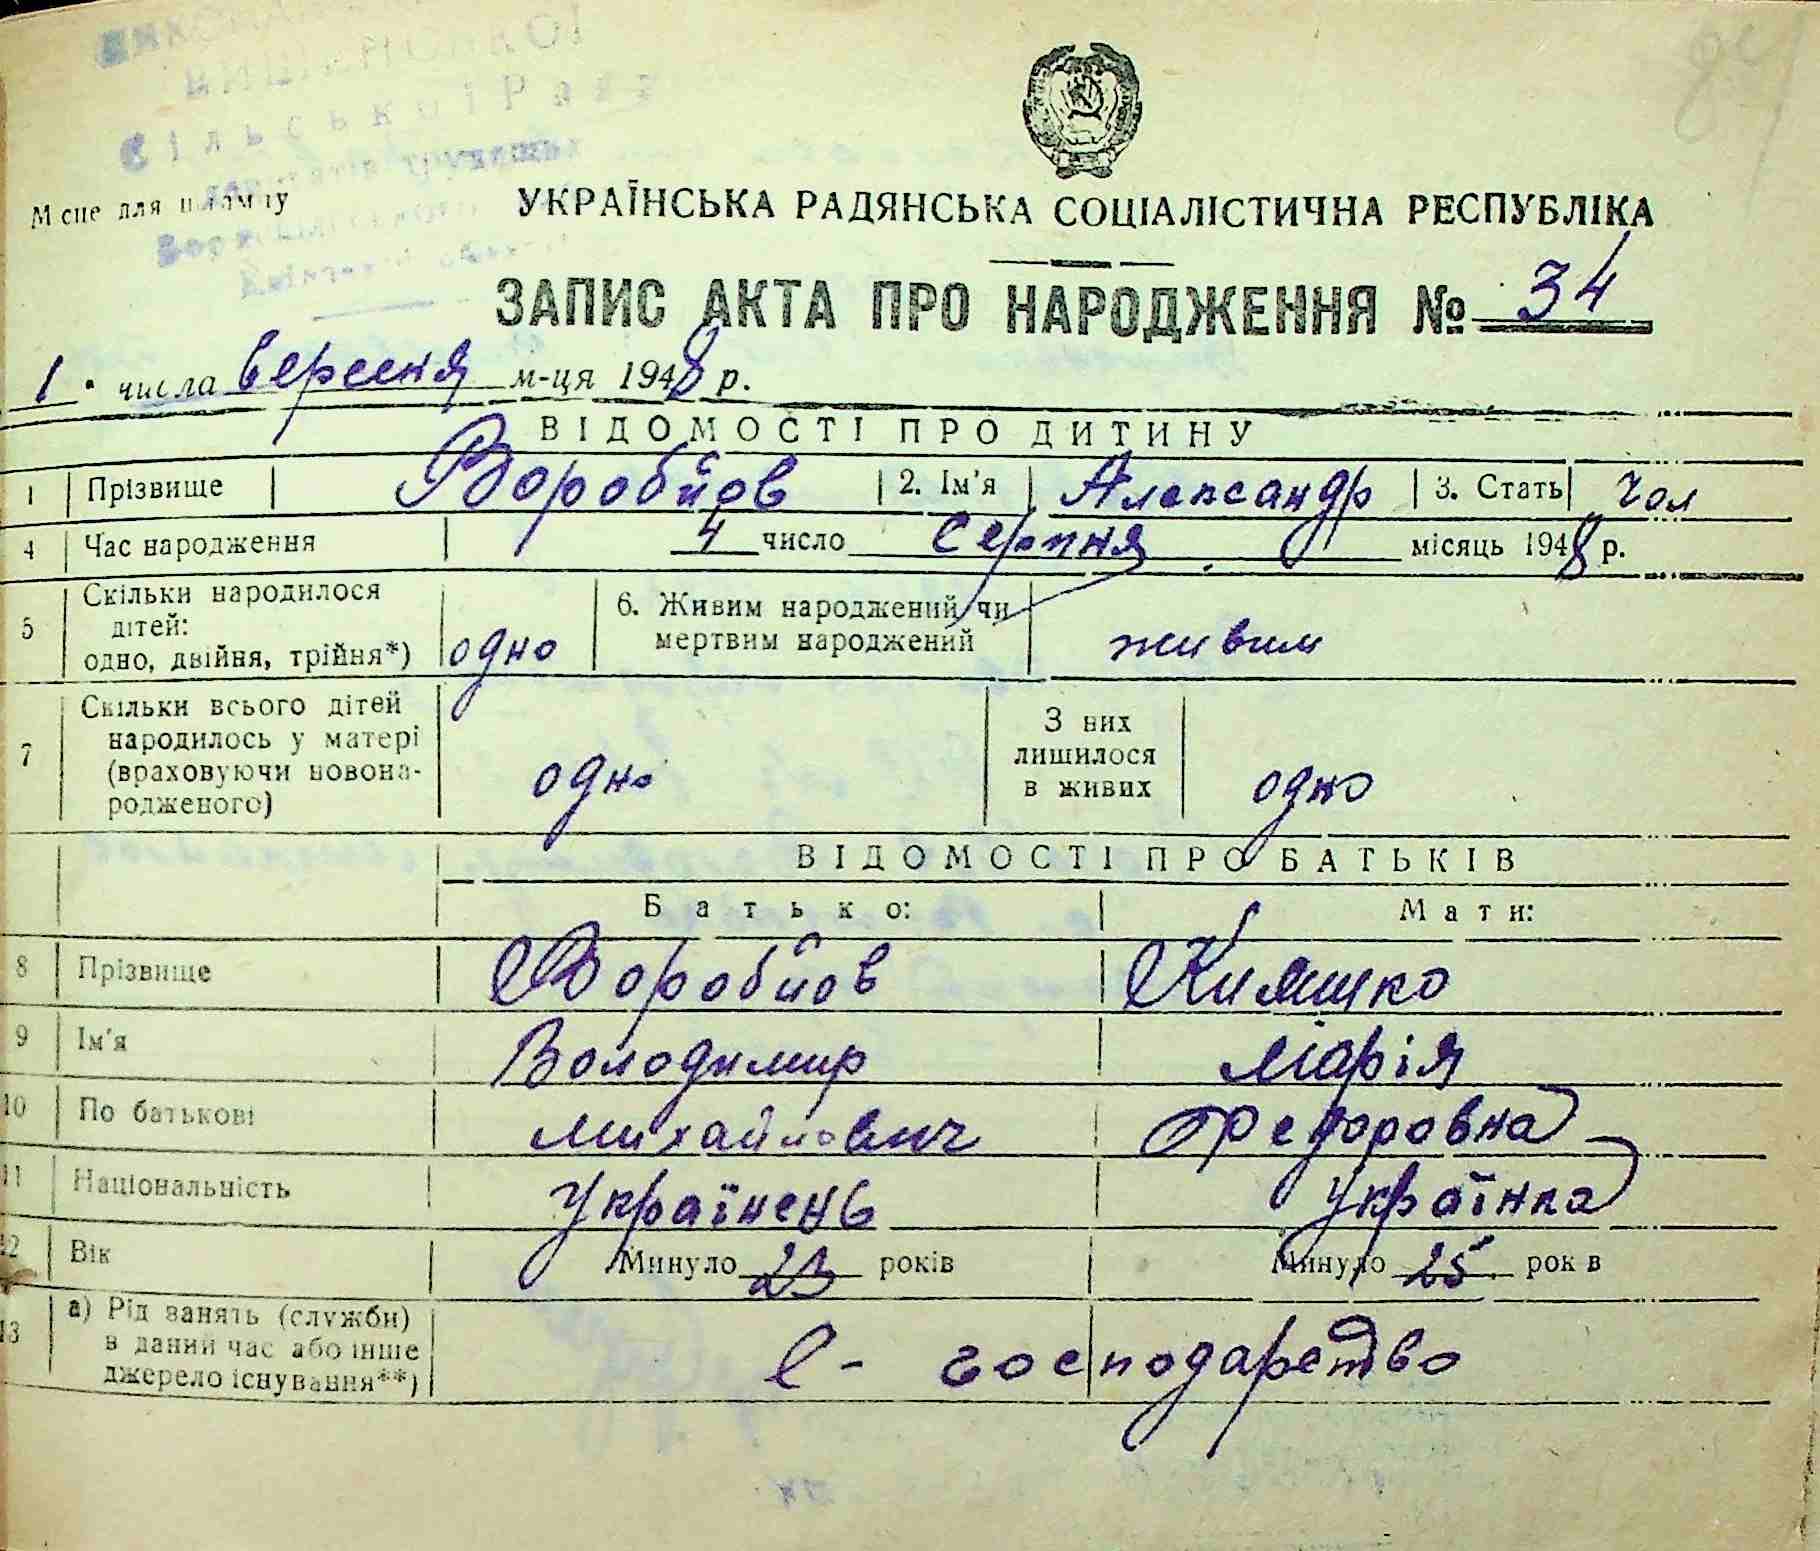 Сільської Ради
УКРАЇНСЬКА РАДЯНСЬКА СОЦІАЛІСТИЧНА РЕСПУБЛІКА
ЗАПИС АКТА ПРО НАРОДЖЕННЯ № 34
1 числа вересня м-ця 1948 р.
ВІДОМОСТІ ПРО ДИТИНУ
1 Прізвище Воробйов 2. Ім'я Александр 3. Стать Чол
4 Час народження 4 число Серпня місяць 1948 р.
5 Скільки народилося дітей: одно, двійня, трійня*) одно 6. Живим народжений чи мертвим народжений живим
7 Скільки всього дітей народилось у матері (враховуючи новонародженого) одно З них лишилося в живих одно
ВІДОМОСТІ ПРО БАТЬКІВ
Батько: Мати:
8 Прізвище Воробйов
9 Ім'я Володимир Марія
10 По батькові Михайлович Федоровна
11 Національність Українець Українка
12 Вік Минуло 23 років Минуло 25 рок в
13 а) Рід занять (служби) в даний час або інше джерело існування**) с- господарство